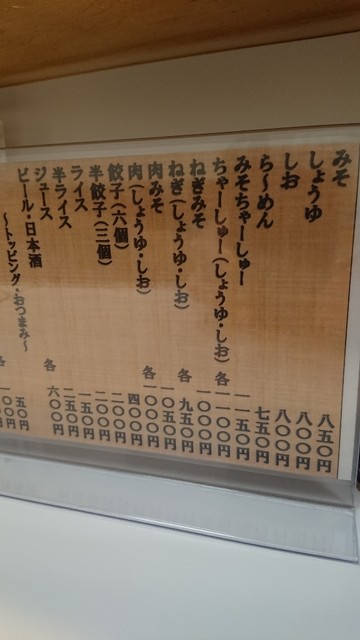 みそ 八五〇円
しょうゆ 八〇〇円
しお 八〇〇円
ら〜めん 七五〇円
みそちゃーしゅー 一一五〇円
ちゃーしゅー(しょうゆ・しお) 各一一〇〇円
ねぎみそ 一〇〇〇円
ねぎ(しょうゆ・しお) 各九五〇円
肉みそ 一〇五〇円
肉(しょうゆ・しお) 各一〇〇〇円
餃子(六個) 四〇〇円
半餃子(三個) 二〇〇円
ライス 二〇〇円
半ライス 一五〇円
ジュース 二五〇円
ビール・日本酒 各六〇〇円
〜トッピング・おつまみ〜
五〇円
各一〇〇円